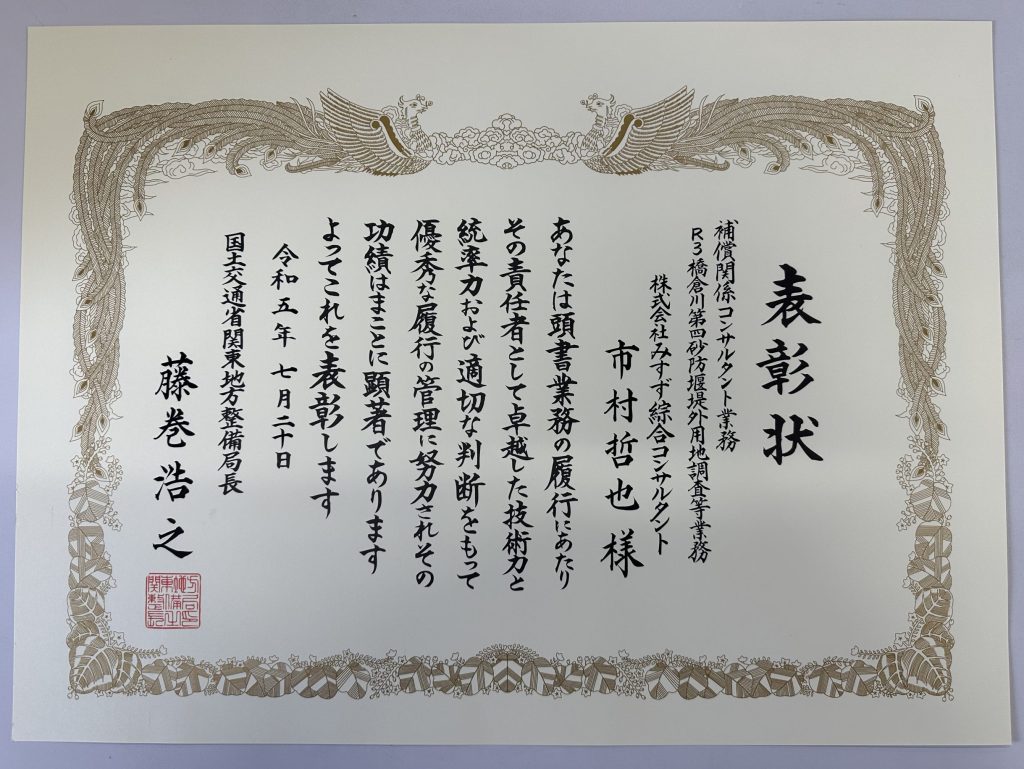 表彰状
補償関係コンサルタント業務
R3橋倉川第四砂防堰堤外用地調査等業務
株式会社みすず綜合コンサルタント
市村哲也様
あなたは頭書業務の履行にあたり
その責任者として卓越した技術力と
統率力および適切な判断をもって
優秀な履行の管理に努力されその
功績はまことに顕著であります
よってこれを表彰します
令和五年七月二十日
国土交通省関東地方整備局長
藤巻浩之